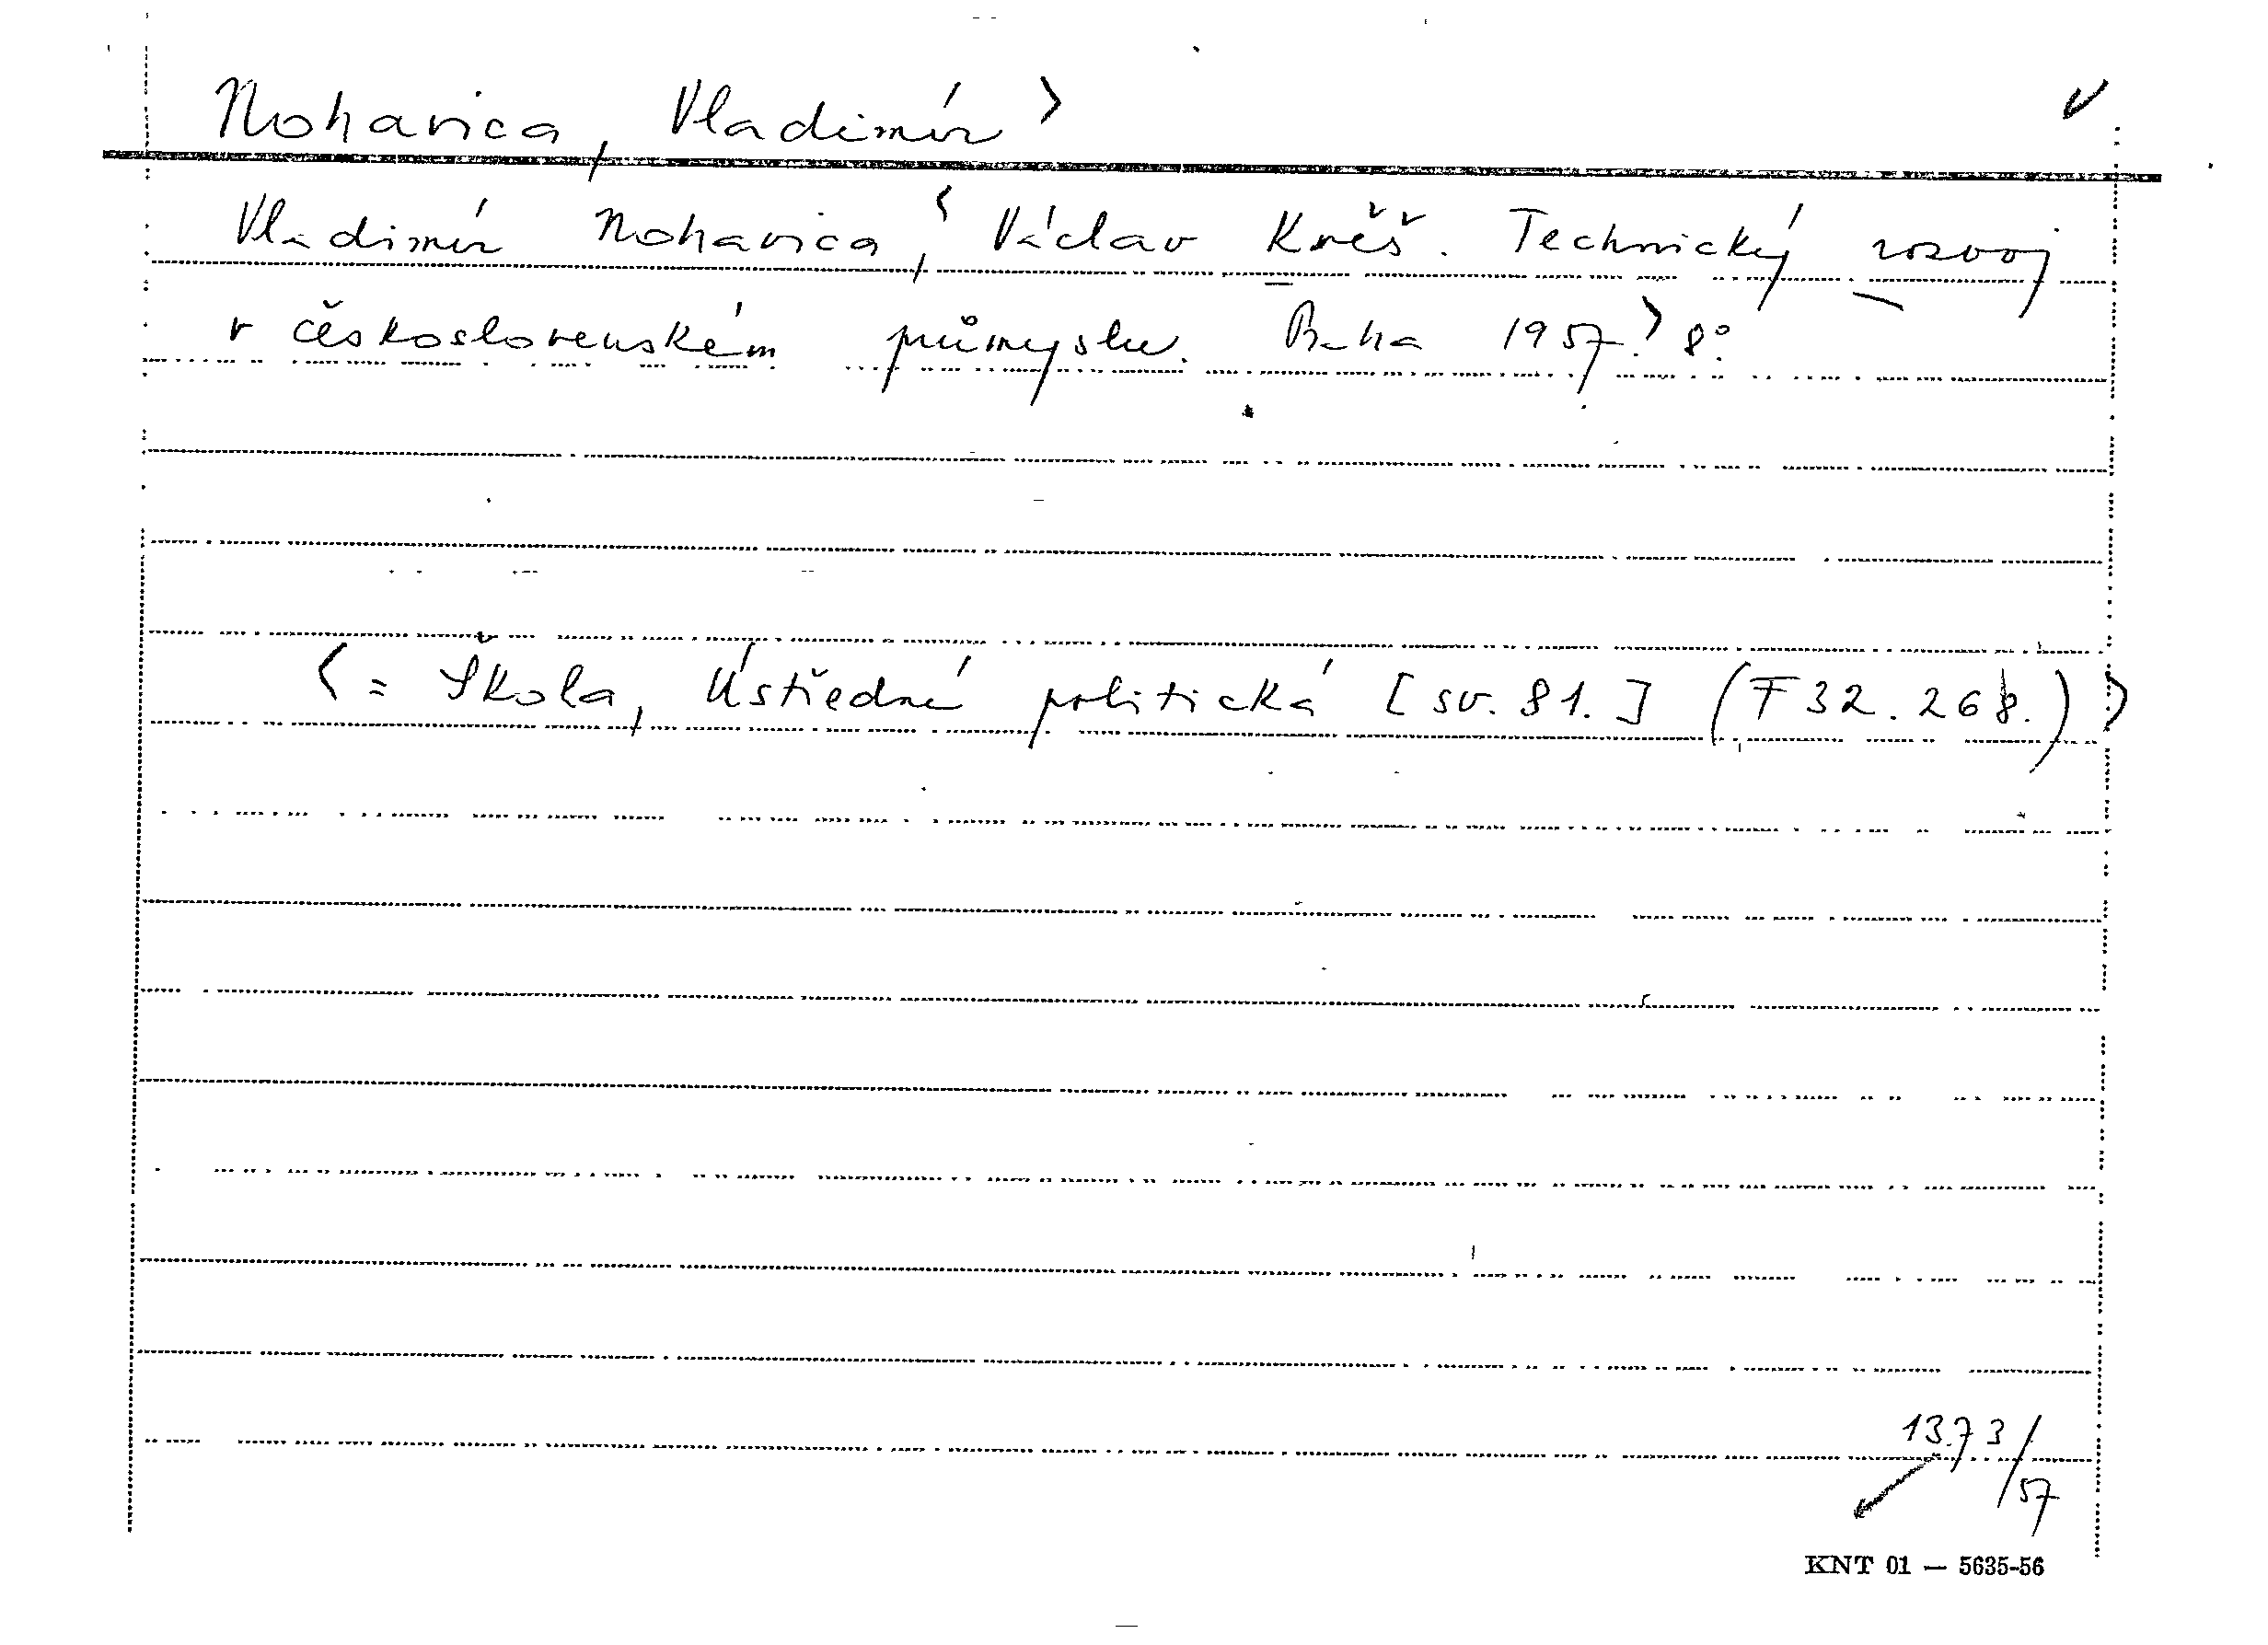 Nohavica, Vladimír >
Vladimír Nohavica, < Václav Kněš. Technický rozvoj
v československém průmyslu. Praha 1957. > 8°.
< = Škola, Ústřední politická [sv. 81.] (F 32.268.) >
1373/57
KNT 01 — 5635-56